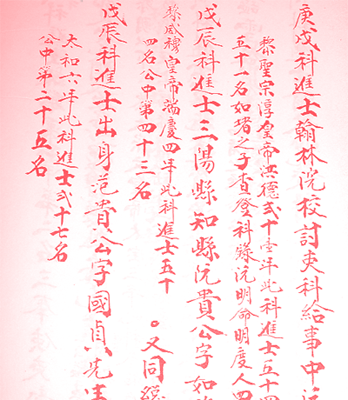 庚戌科進士翰林院校討吏科給事中
黎聖宗淳皇帝洪德弍十壹年此科進士五十四
五十一名如堵之子查登科錄阮明命明度人四
戊辰科進士三陽縣知縣阮貴公字如
黎威穆皇帝端慶四年此科進士五十
四名公中第四十三名
。又同
戊辰科進士出身范貴公字國貞
太和六年此科進士弍十七名
公中第二十五名